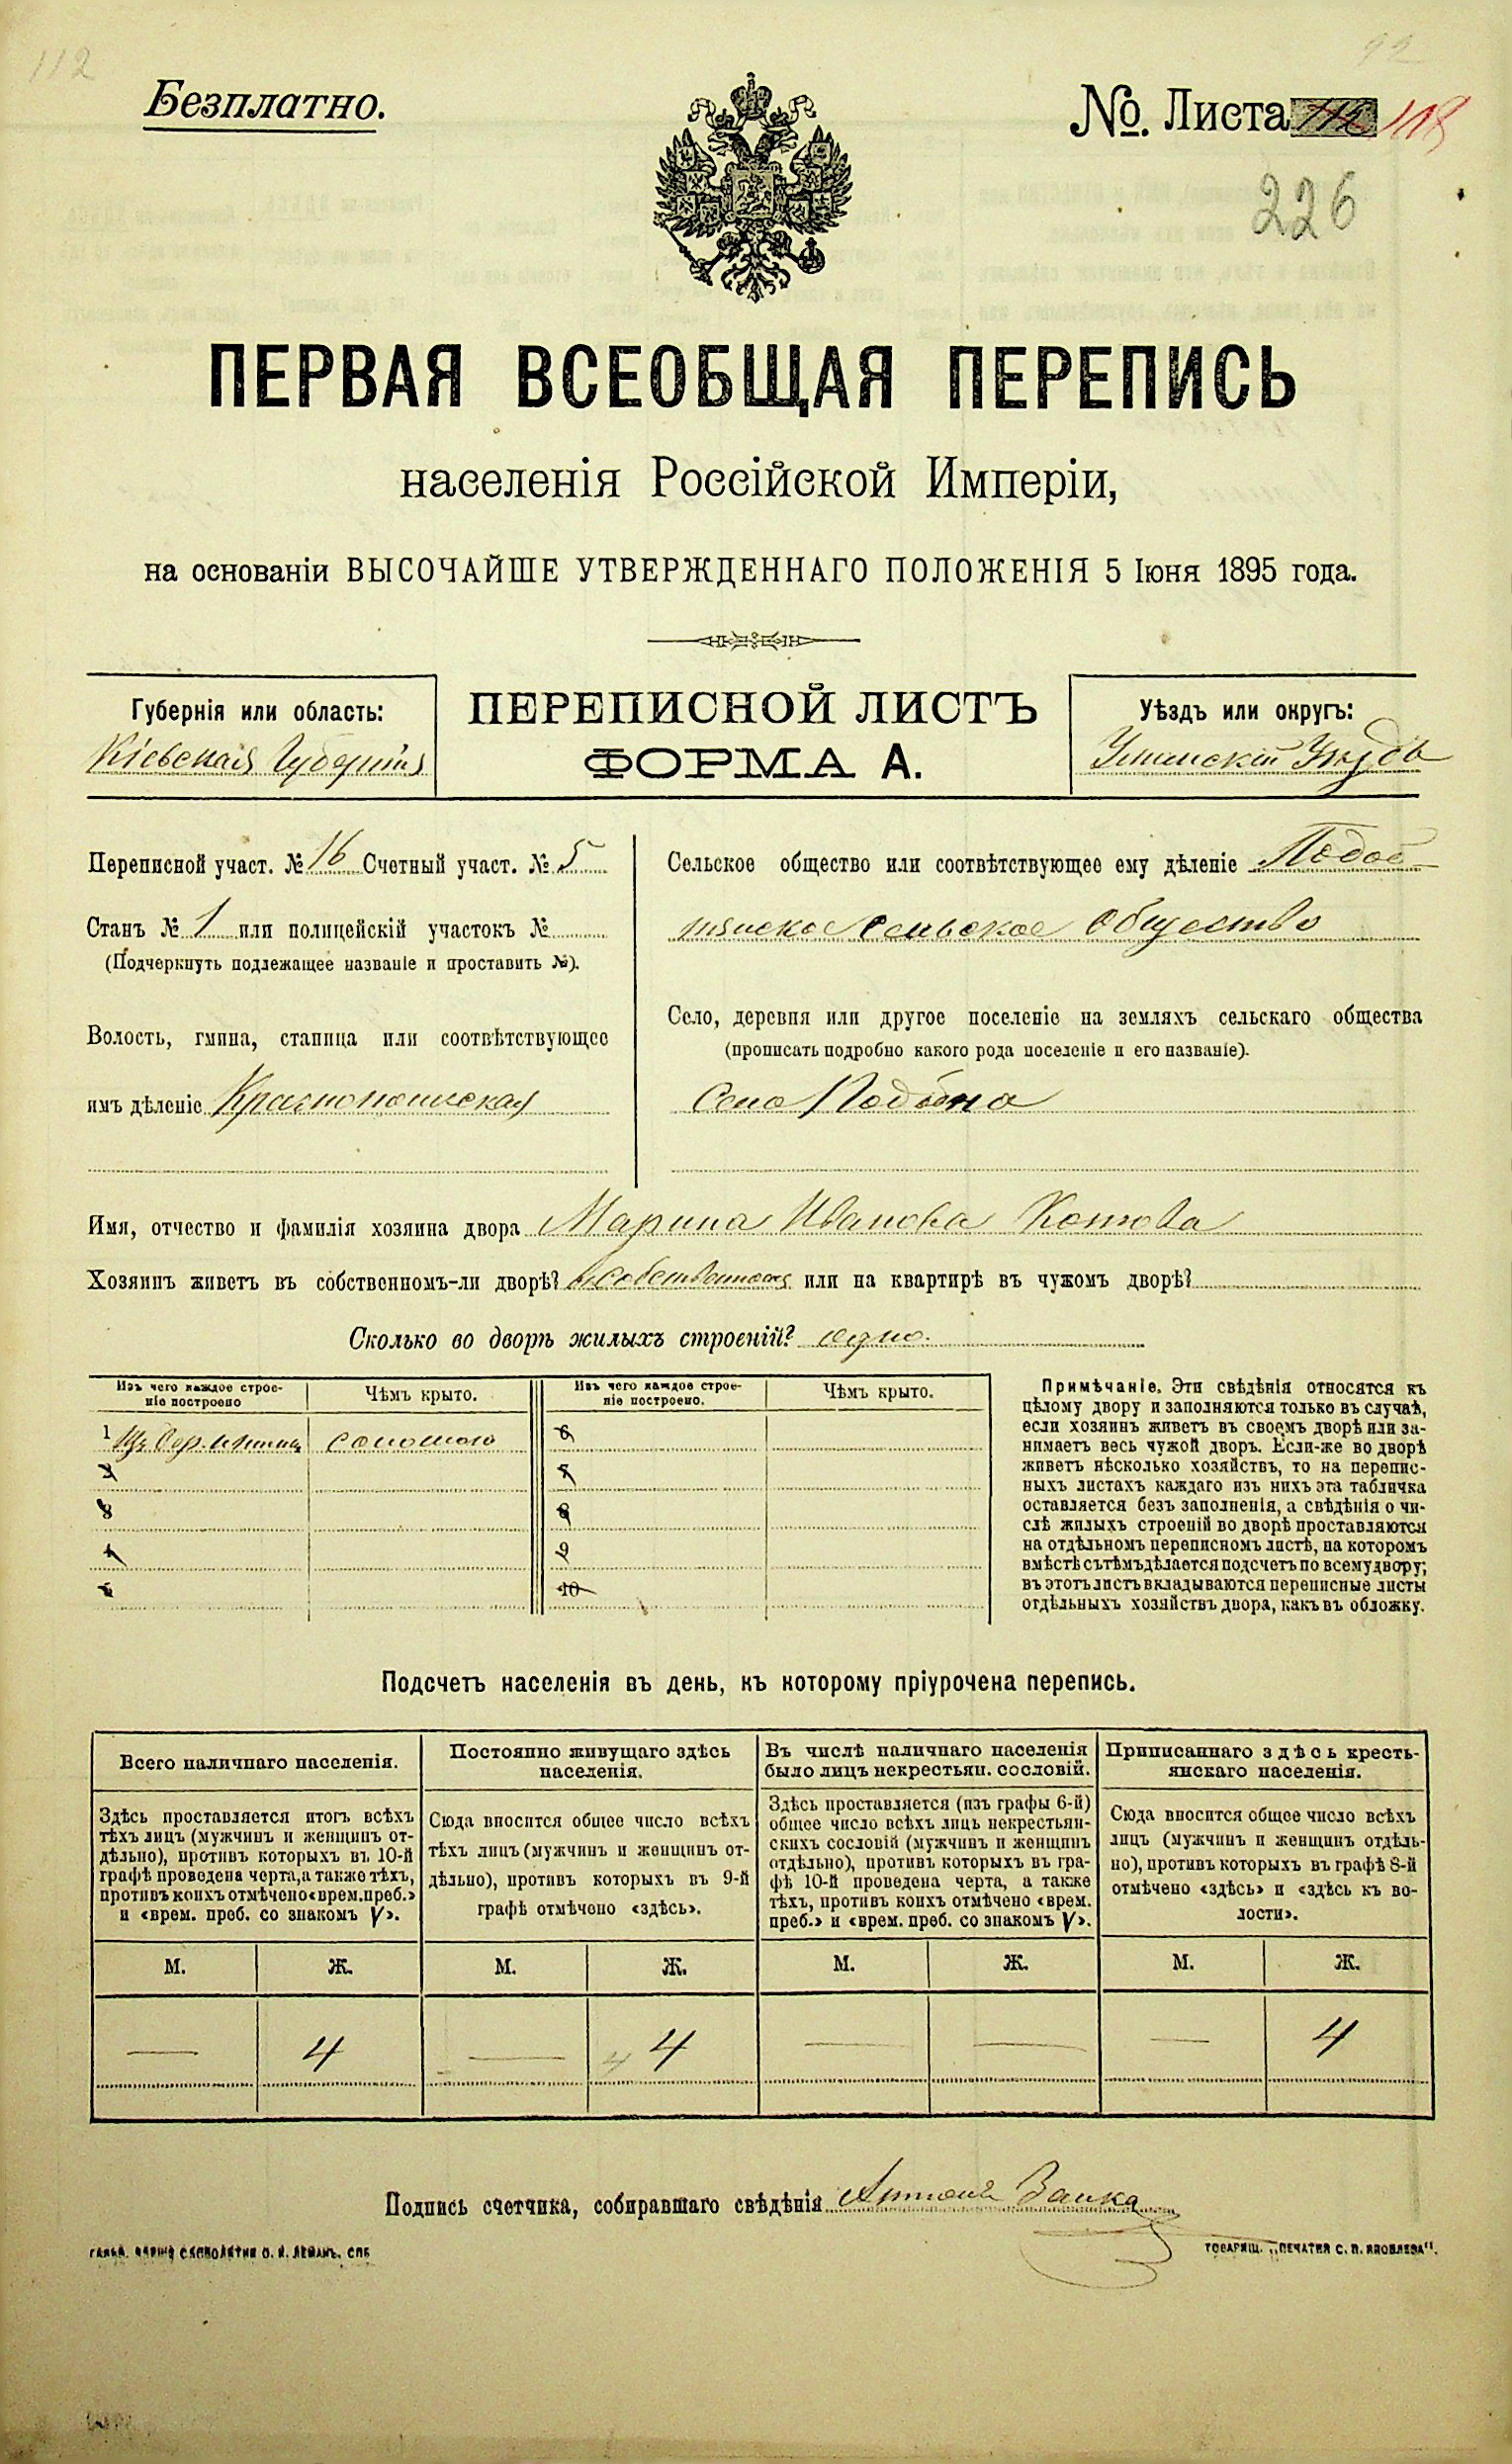 112
92
Безплатно.
№. Листа 112 118
226
ПЕРВАЯ ВСЕОБЩАЯ ПЕРЕПИСЬ
населенія Россійской Имперіи,
на основаніи ВЫСОЧАЙШЕ УТВЕРЖДЕННАГО ПОЛОЖЕНІЯ 5 Іюня 1895 года.
Губернія или область:
Кіевская Губернія
ПЕРЕПИСНОЙ ЛИСТЪ
ФОРМА А.
Уѣздъ или округъ:
Уманскій Уѣздъ
Переписной участ. № 16 Счетный участ. № 5
Станъ № 1 или полицейскій участокъ №
(Подчеркнуть подлежащее названіе и проставить №).
Волость, гмина, станица или соотвѣтствующее
имъ дѣленіе Краснопольская
Сельское общество или соотвѣтствующее ему дѣленіе Подоб-
нянское Сельское Общество
Село, деревня или другое поселеніе на земляхъ сельскаго общества
(прописать подробно какого рода поселеніе и его названіе).
Село Подобна
Имя, отчество и фамилія хозяина двора Марина Иванова Котова
Хозяинъ живетъ въ собственномъ-ли дворѣ? въ собственном или на квартирѣ въ чужомъ дворѣ?
Сколько во дворѣ жилыхъ строеній? одно.
Изъ чего каждое строе-
ніе построено
Чѣмъ крыто.
Изъ чего каждое строе-
ніе построено.
Чѣмъ крыто.
1 Изъ дер. и глины соломою
2
3
4
5
6
7
8
9
10
Примѣчаніе. Эти свѣдѣнія относятся къ
цѣлому двору и заполняются только въ случаѣ,
если хозяинъ живетъ въ своемъ дворѣ или за-
нимаетъ весь чужой дворъ. Если-же во дворѣ
живетъ нѣсколько хозяйствъ, то на перепис-
ныхъ листахъ каждаго изъ нихъ эта табличка
оставляется безъ заполненія, а свѣдѣнія о чи-
слѣ жилыхъ строеній во дворѣ проставляются
на отдѣльномъ переписномъ листѣ, на которомъ
вмѣстѣ съ тѣмъ дѣлается подсчетъ по всему двору;
въ этотъ листъ вкладываются переписные листы
отдѣльныхъ хозяйствъ двора, какъ въ обложку.
Подсчетъ населенія въ день, къ которому пріурочена перепись.
Всего наличнаго населенія.
Здѣсь проставляется итогъ всѣхъ
тѣхъ лицъ (мужчинъ и женщинъ от-
дѣльно), противъ которыхъ въ 10-й
графѣ проведена черта, а также тѣхъ,
противъ коихъ отмѣчено «врем. преб.»
и «врем. преб. со знакомъ V».
М. Ж.
— 4
Постоянно живущаго здѣсь
населенія.
Сюда вносится общее число всѣхъ
тѣхъ лицъ (мужчинъ и женщинъ от-
дѣльно), противъ которыхъ въ 9-й
графѣ отмѣчено «здѣсь».
М. Ж.
— 4 4
Въ числѣ наличнаго населенія
было лицъ некрестьян. сословій.
Здѣсь проставляется (изъ графы 6-й)
общее число всѣхъ лицъ некрестьян-
скихъ сословій (мужчинъ и женщинъ
отдѣльно), противъ которыхъ въ гра-
фѣ 10-й проведена черта, а также
тѣхъ, противъ коихъ отмѣчено «врем.
преб.» и «врем. преб. со знакомъ V».
М. Ж.
— —
Приписаннаго здѣсь кресть-
янскаго населенія.
Сюда вносится общее число всѣхъ
лицъ (мужчинъ и женщинъ отдѣль-
но), противъ которыхъ въ графѣ 8-й
отмѣчено «здѣсь» и «здѣсь къ во-
лости».
М. Ж.
— 4
Подпись счетчика, собиравшаго свѣдѣнія Антоній Заика
О. И. ЛЕМАНЪ. СПБ
ТОВАРИЩ. „ПЕЧАТНЯ С. П. ЯКОВЛЕВА".